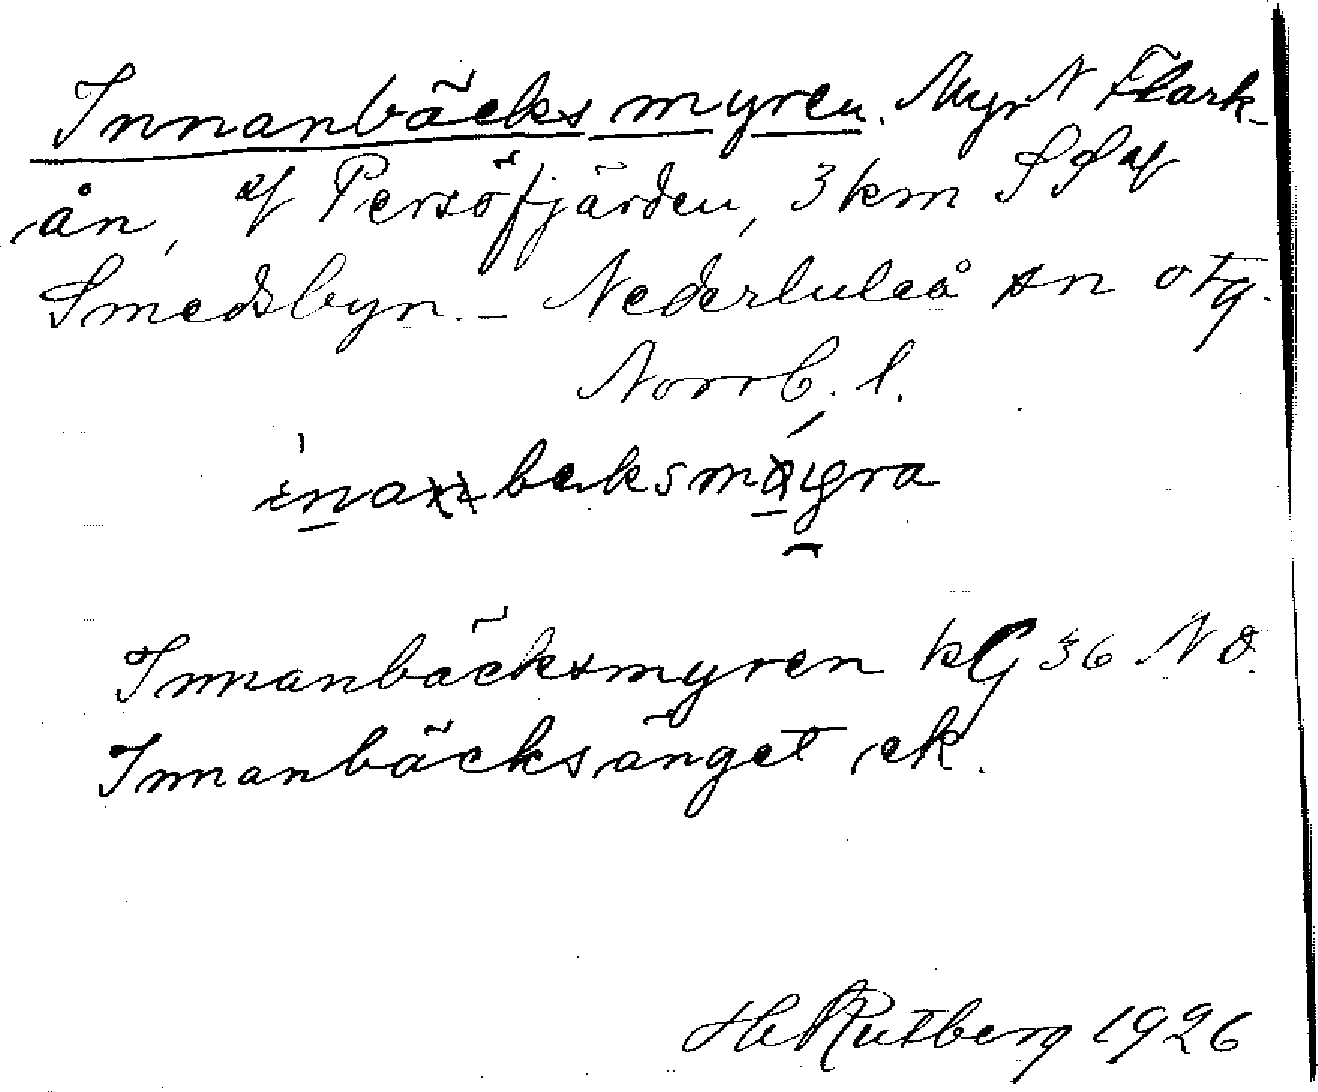 Innanbäcksmyren. Myr N Flark-
ån, af Persöfjärden, 3 km SS af
Smedsbyn. - Nederluleå sn o tg.
Norrb. l.
Innanbäcksmyren kG 36 NO.
Innanbäcksänget, ek.
H Rutberg 1926